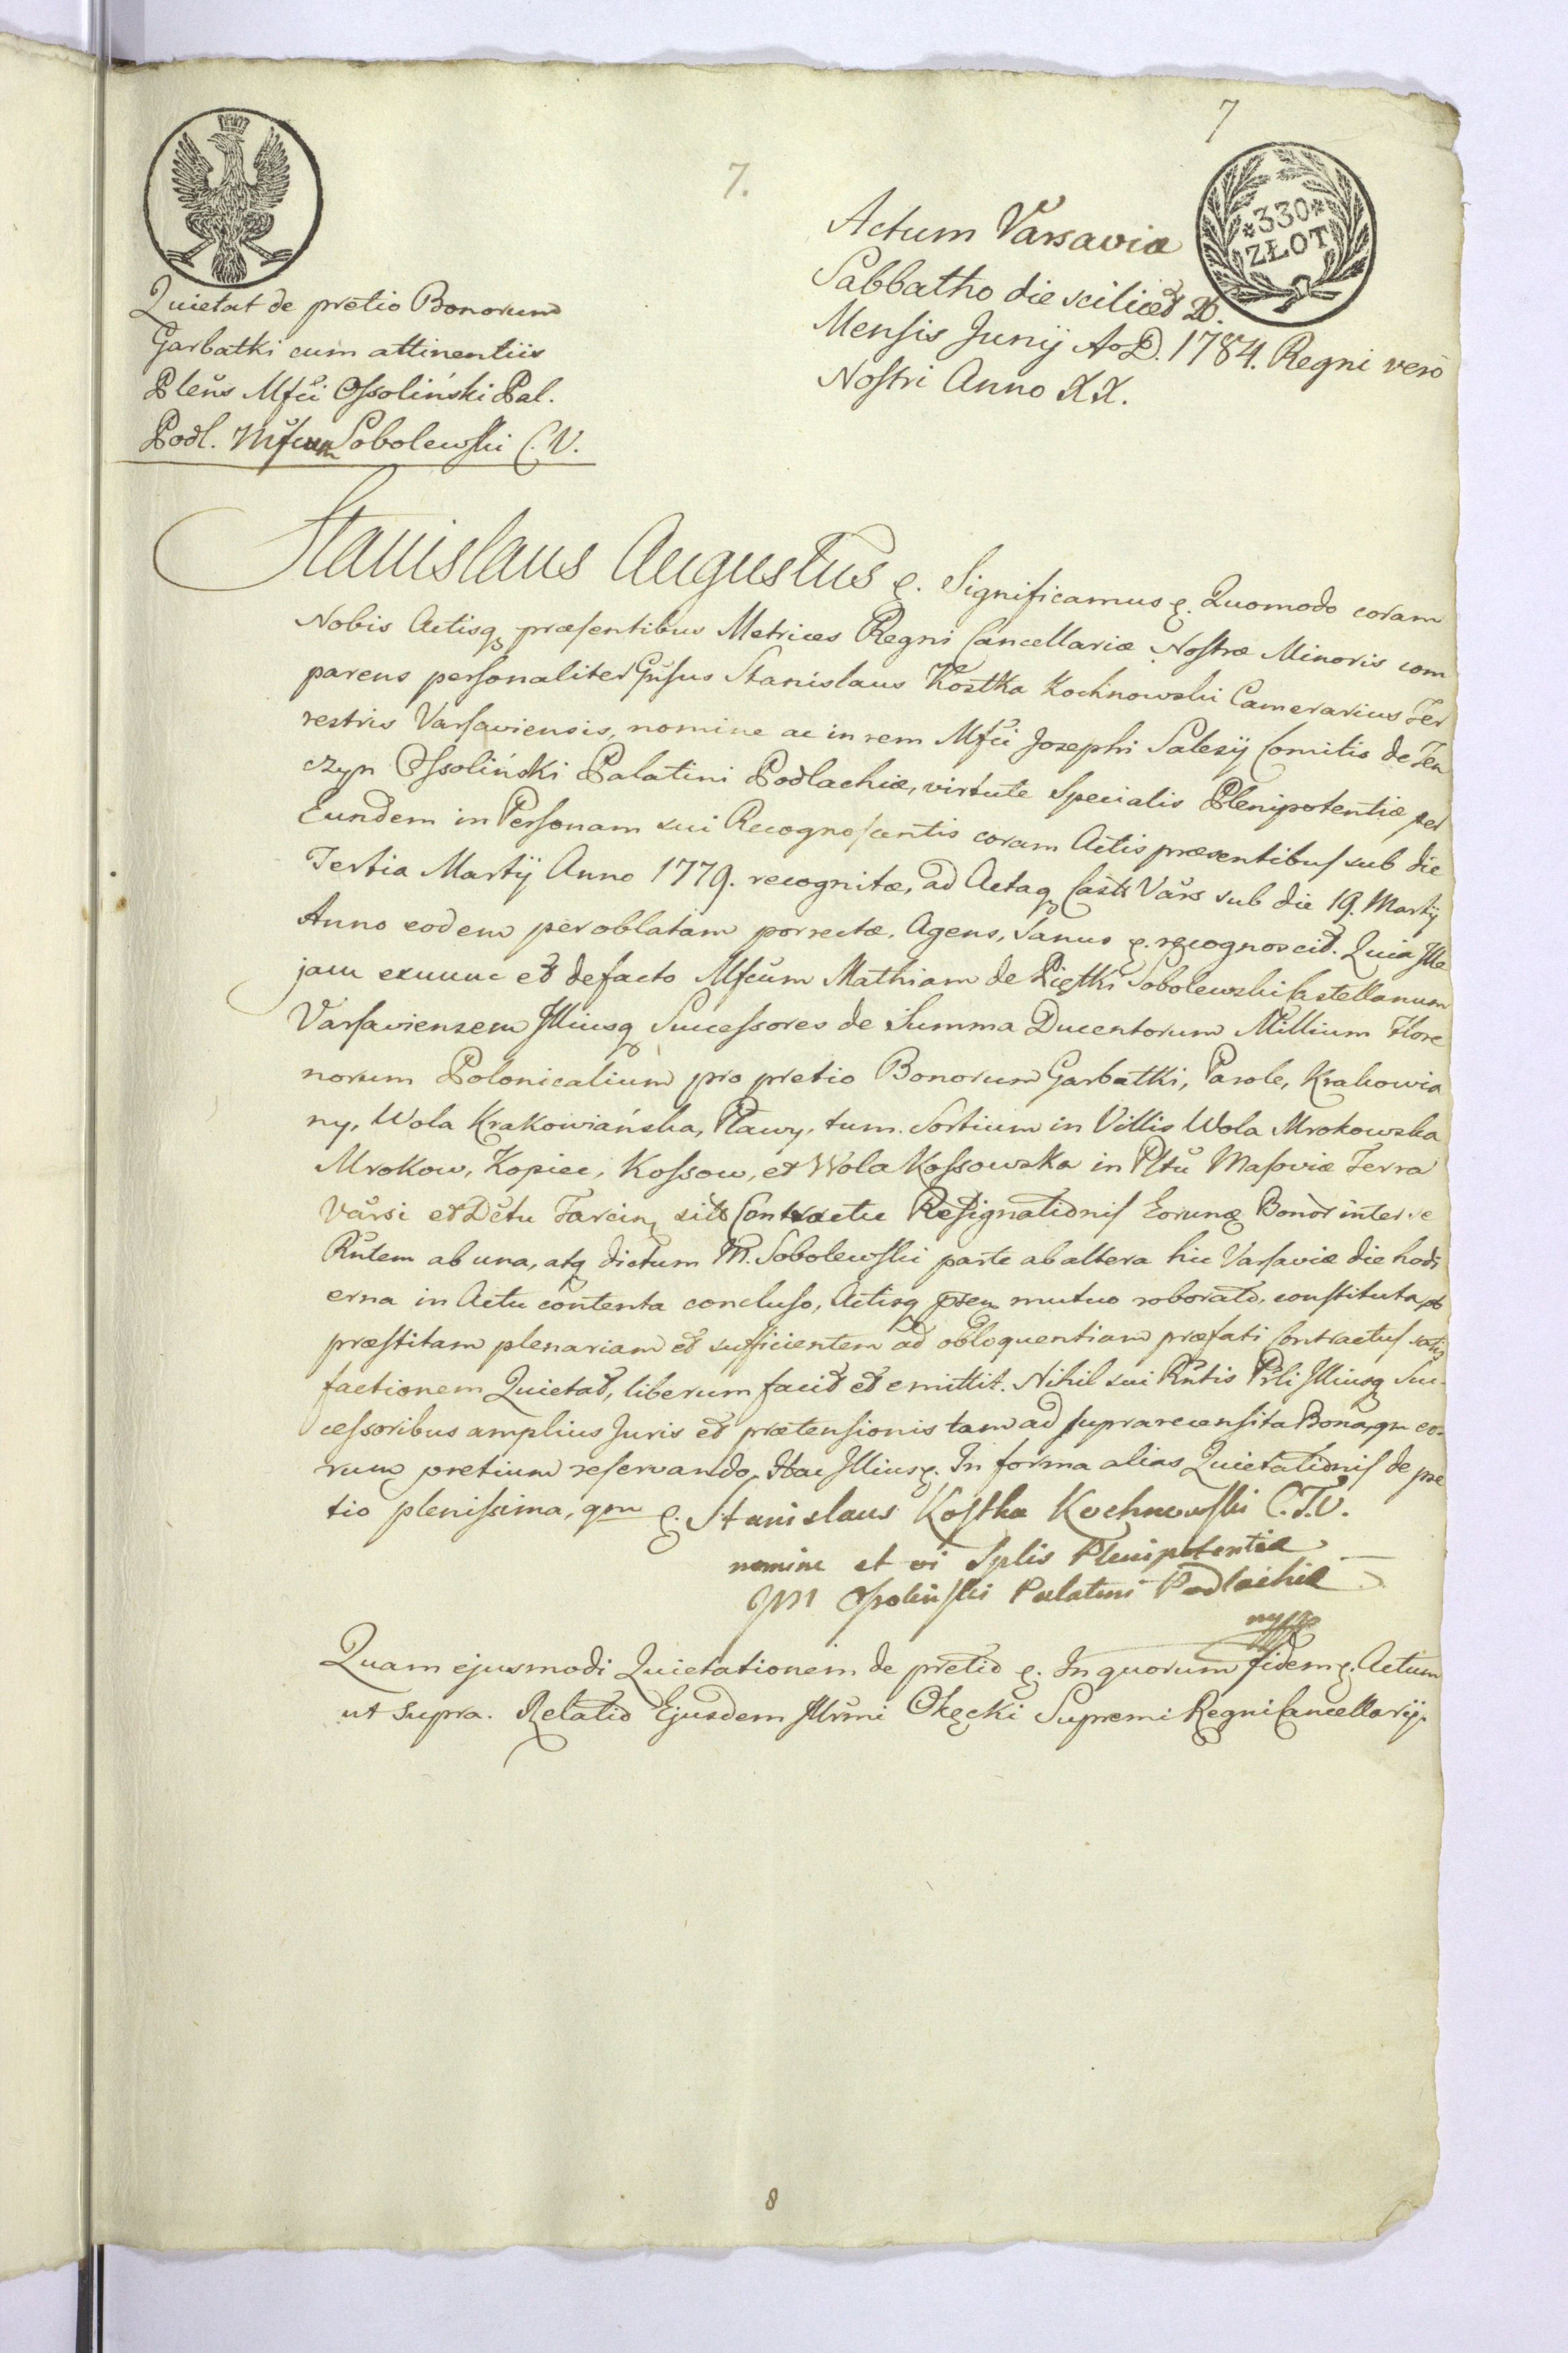 7
7.
*330*
ZŁOT
Actum Varsaviæ
Sabbatho die scilicet
Mensis Junij Ao D. 1784. Regni vero
Nostri Anno XX.
Quietat de pretio Bonorum
Garbatki cum attinentiis
Plenus Mfci Ossoliński Pal.
Podl. Mfcum Sobolewski C. V.
Stanislaus Augustus &. Significamus &. Quomodo coram
Nobis Actisq præsentibus Metrices Regni Cancellariæ Nostræ Minoris com
parens personaliter Gnsus Stanislaus Kostka Kochnowski Camerarius Ter
restris Varsaviensis, nomine ac in rem Mfci Josephi Salezij Comitis de Ten
czyn Ossoliński Palatini Podlachiæ, virtute Specialis Plenipotentiæ per
Eundem in Personam sui Recognoscentis coram Actis præsentibus sub die
Tertia Martij Anno 1779. recognitæ, ad Actaq Castr Vars sub die 19. Martij
Anno eodem per oblatam porrectæ. Agens, Sanus &. recognoscit. Quia Ille
jam exnunc et defacto Mfcum Mathiam de Piętki Sobolewski Castellanum
Varsaviensem Illiusq Successores de Summa Ducentorum Millium Flore
norum Polonicalium pro pretio Bonorum Garbatki, Parole, Krakowia
ny, Wola Krakowiańska, Pławy, tum Sortium in Villis Wola Mrokowska
Mrokow, Kopiec, Kossow, et Wola Kossowska in Pltu Masoviæ Terra
Varsi et Dctu Tarcin, sits Contractu Resignationis Eorunq Bonor inter se
Rntem ab una, atq dictum M. Sobolewski parte ab altera hic Varsaviæ die hodi
erna in Actu contenta concluso, Actisq mutuo roborato, constituta ob
præstitam plenariam et sufficientem ad obloquentiam præfati Contractus satis
factionem Quietat, liberum facit et emittit. Nihil sui Rntis Prli Illiusq Suc
cessoribus amplius Juris et prætensionis tam ad suprarecensita Bona, qm eo
rum pretium reservando, Hac Illius &. In forma alias Quietationis de pre
tio plenissima, qm &. Stanislaus Kostka Kochnowski C.T.V.
nomine et vi Splis Plenipotentiæ
JM Ossoliński Palatini Podlachiæ
Quam ejusmodi Quietationem de pretio &. In quorum fidem &. Actum
ut supra. Relatio Ejusdem Illrmi Okęcki Supremi Regni Cancellarij.
8